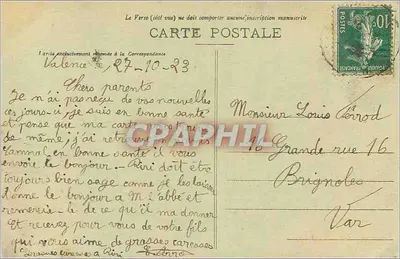 Le Verso (côté vue) ne doit comporter aucune inscription manuscrite
CARTE POSTALE
Partie exclusivement réservée à la Correspondance
Valence le 27-10-23
Chers parents
Je n'ai pas reçu de vos nouvelles
ces jours-ci, je suis en bonne santé
et pense que ma carte vous
de même, j'ai retrouvé
en bonne santé il vous
envoie le bonjour. Riri doit être
toujours bien sage comme je les laisse
donne le bonjour à M l'abbé et
remercie-le de ce qu'il m'a donner
Et recevez pour vous de votre fils
qui vous aime de grosses caresses
Grosses caresses à Riri Pierre
Monsieur Louis
16 Grande rue 16
Brignoles
Var
10c
POSTES
CPARHIL